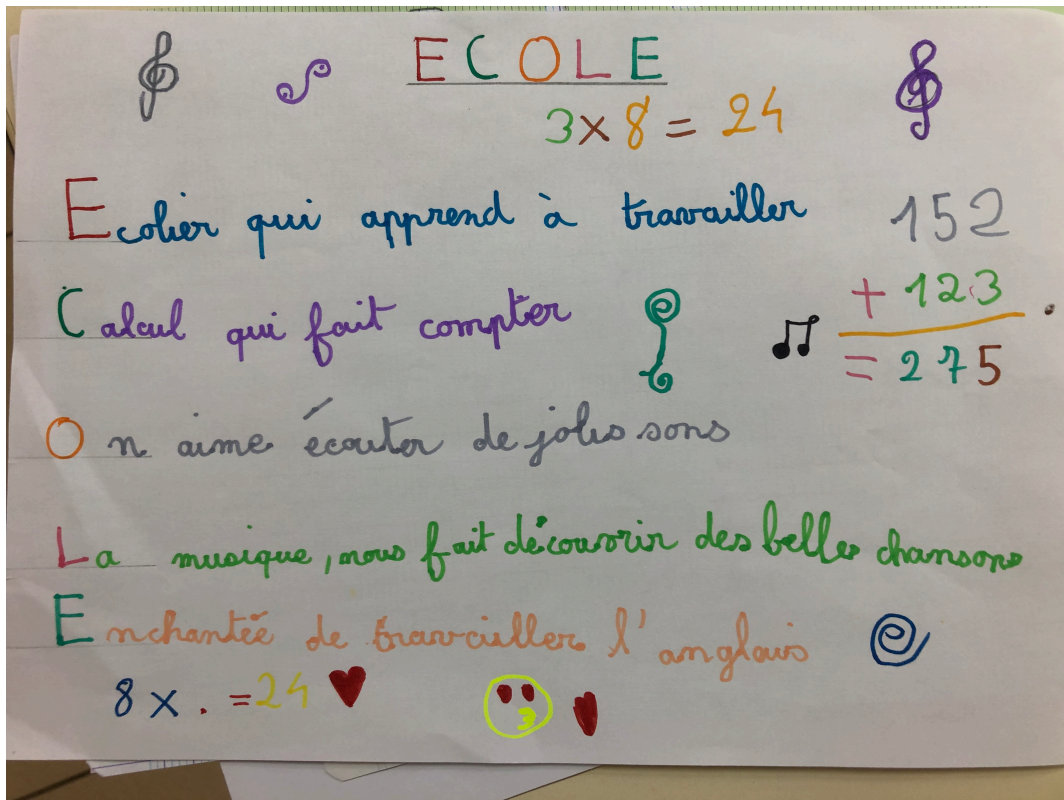 ECOLE
3 x 8 = 24
Ecolier qui apprend à travailler
152
+ 123
= 275
Calcul qui fait compter
On aime écouter de jolis sons
La musique, nous fait découvrir des belles chansons
Enchantée de travailler l'anglais
8 x . = 24